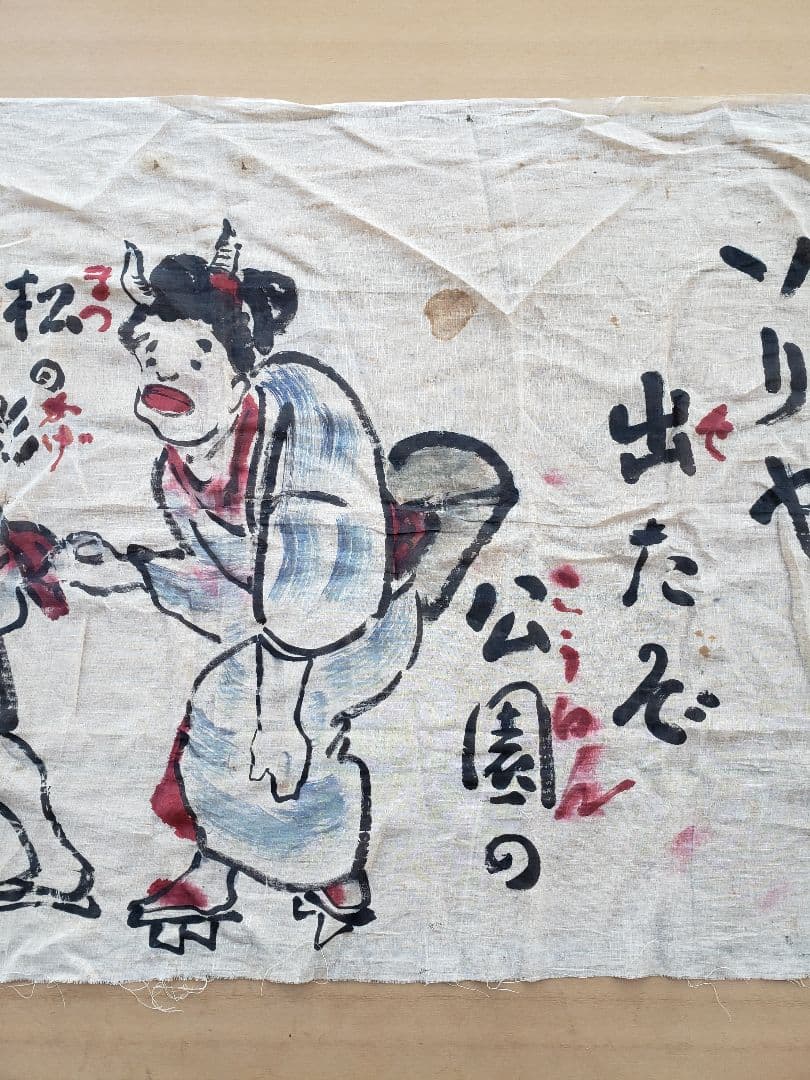 ソリヤ
出たぞ
公園の
こうゑん
松の影
まつ
かげ